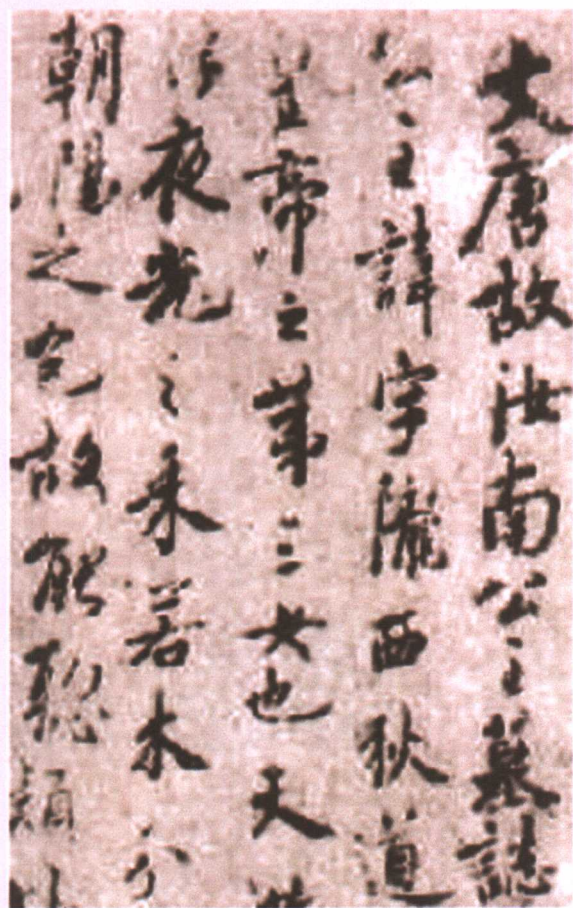 大唐故汝南公主墓誌
公主諱字隴西狄道
皇帝之第三女也天
浮夜光之采若木分
朝陽之色故能聰穎